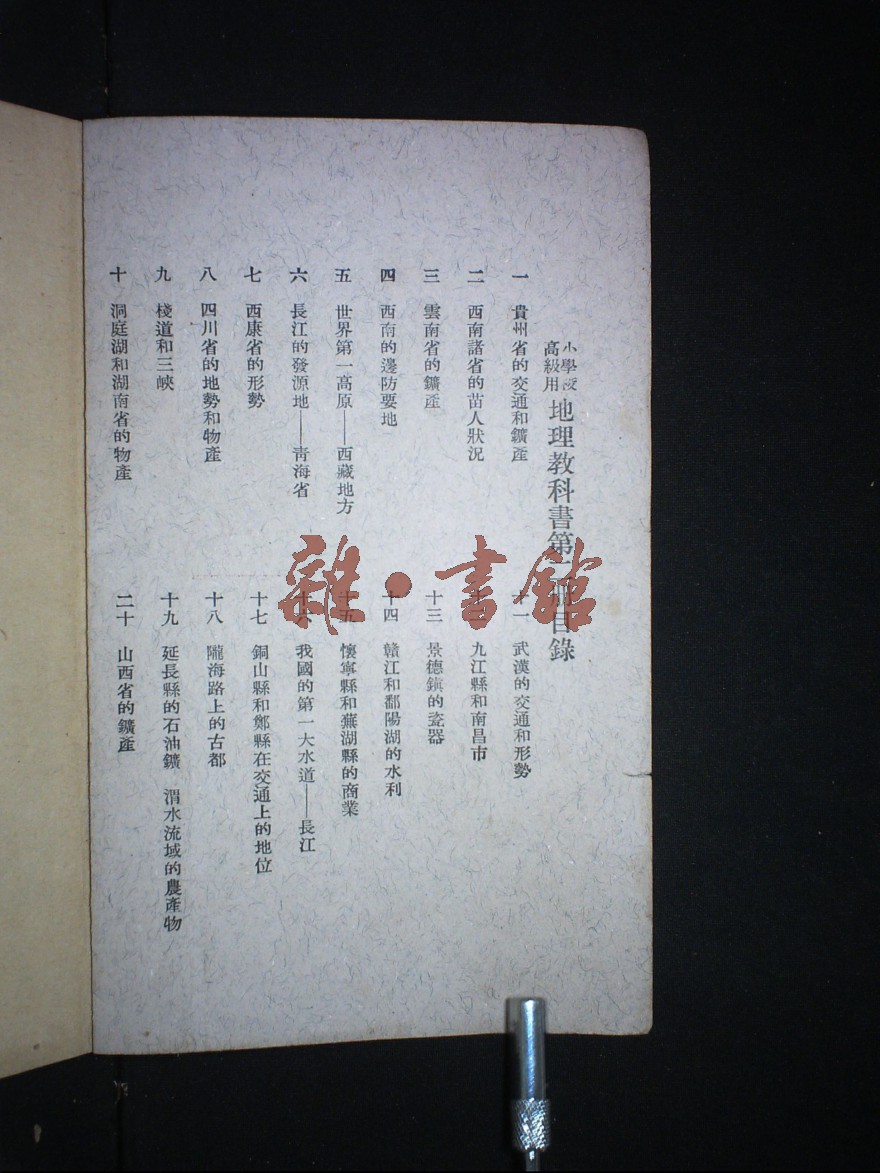 小學校
高級用
地理教科書第 冊目錄
一 貴州省的交通和鑛產
二 西南諸省的苗人狀況
三 雲南省的鑛產
四 西南的邊防要地
五 世界第一高原——西藏地方
六 長江的發源地——青海省
七 西康省的形勢
八 四川省的地勢和物產
九 棧道和三峽
十 洞庭湖和湖南省的物產
十一 武漢的交通和形勢
十二 九江縣和南昌市
十三 景德鎮的瓷器
十四 贛江和鄱陽湖的水利
十五 懷寧縣和蕪湖縣的商業
十六 我國的第一大水道——長江
十七 銅山縣和鄭縣在交通上的地位
十八 隴海路上的古都
十九 延長縣的石油鑛 渭水流域的農產物
二十 山西省的鑛產
雜·書館